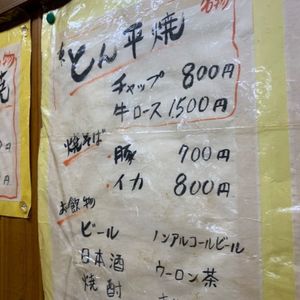 名物
とん平焼
チャップ 800円
牛ロース 1500円
焼そば
・豚 700円
・イカ 800円
お飲物
ビール ノンアルコールビール
日本酒 ウーロン茶
焼酎